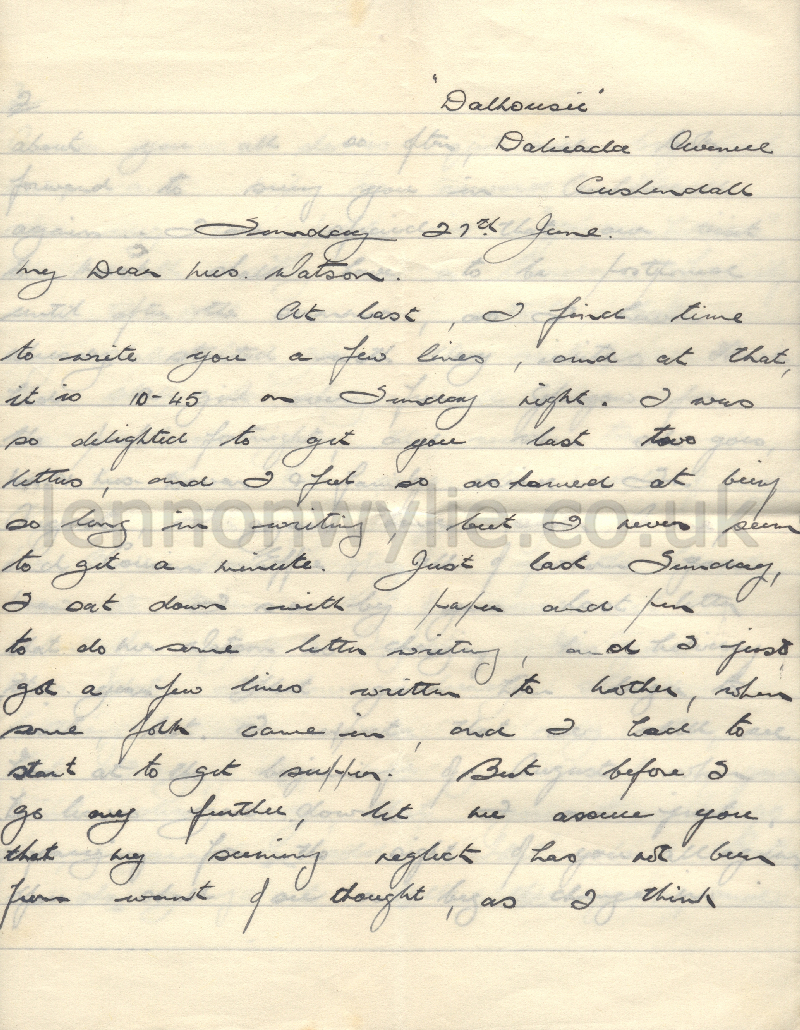 "Dalhousie"
Dalriada Avenue
Cushendall
Sunday 27th June.
My Dear Mrs. Watson.
At last, I find time
to write you a few lines, and at that,
it is 10-45 on Sunday night. I was
so delighted to get you last two
letters, and I feel so ashamed at being
so long in writing, but I never seem
to get a minute. Just last Sunday,
I sat down with paper and pen
to do some letter writing, and I just
got a few lines written to Mother, when
some folk came in, and I had to
start to get supper. But before I
go any further, let me assure you
that my seeming neglect has not been
from want of thought, as I think
lennonwylie.co.uk